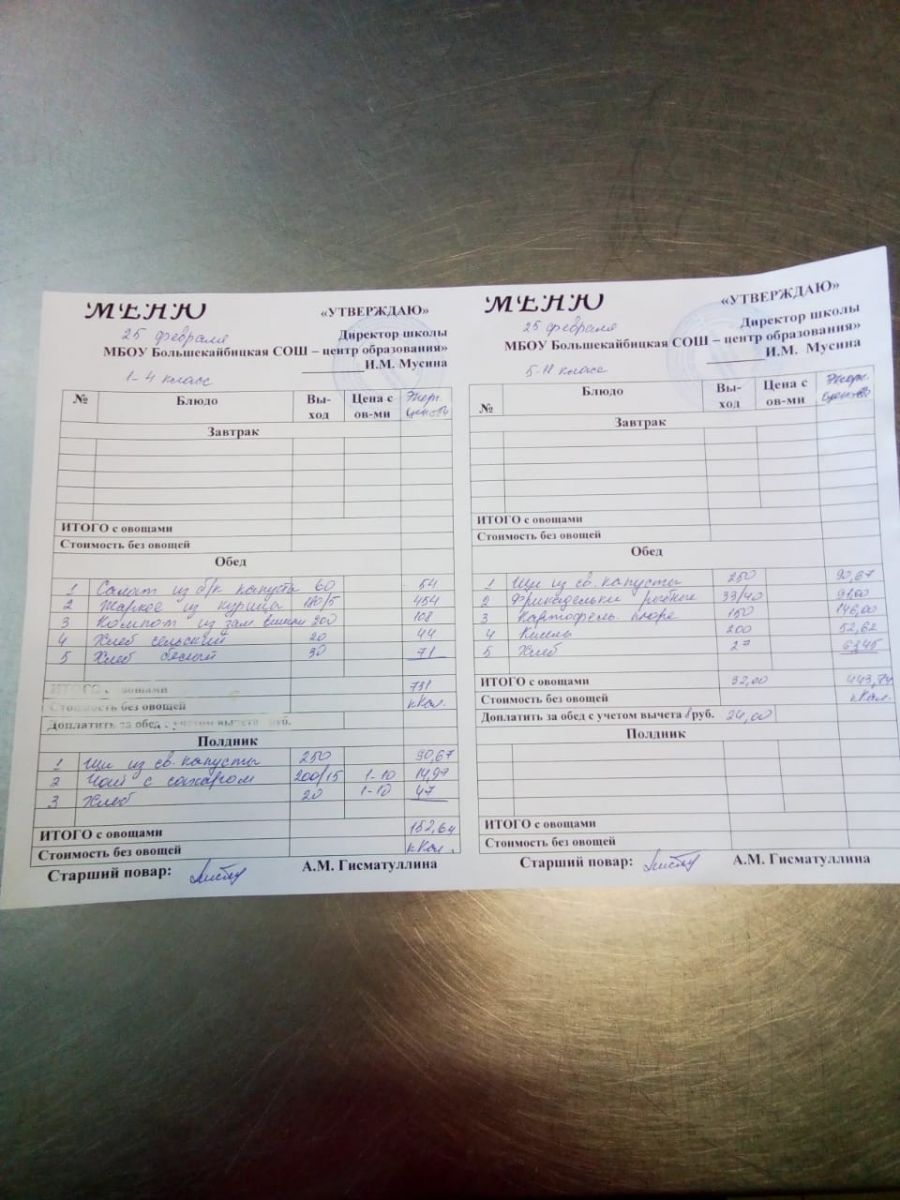 МЕНЮ «УТВЕРЖДАЮ»
25 февраля Директор школы
МБОУ Большекайбицкая СОШ – центр образования»
И.М. Мусина
1-4 класс
№ Блюдо Вы-ход Цена с ов-ми Энерг.
Завтрак
ИТОГО с овощами
Стоимость без овощей
Обед
1 Салат из б/к капусты 60 54
2 Жаркое из курицы 180/5 454
3 Компот из зам вишни 200 108
4 Хлеб сельский 20 44
5 Хлеб белый 30 71
ИТОГО с овощами 731
Стоимость без овощей кКал.
Доплатить за обед с учетом вычета руб.
Полдник
1 Щи из св. капусты 250 90,67
2 Чай с сахаром 200/15 1-10 14,97
3 Хлеб 20 1-10 47
ИТОГО с овощами 152,64
Стоимость без овощей кКал.
Старший повар: А.М. Гисматуллина
МЕНЮ «УТВЕРЖДАЮ»
25 февраля Директор школы
МБОУ Большекайбицкая СОШ – центр образования»
И.М. Мусина
5-11 класс
№ Блюдо Вы-ход Цена с ов-ми Энерг.
Завтрак
ИТОГО с овощами
Стоимость без овощей
Обед
1 Щи из св. капусты 250 90,67
2 Фрикадельки рыбные 33/40 91,00
3 Картофель. пюре 150 146,00
4 Кисель 200 52,62
5 Хлеб 27 63,45
ИТОГО с овощами 32,00 443,74
Стоимость без овощей кКал.
Доплатить за обед с учетом вычета 8 руб. 24,00
Полдник
ИТОГО с овощами
Стоимость без овощей
Старший повар: А.М. Гисматуллина